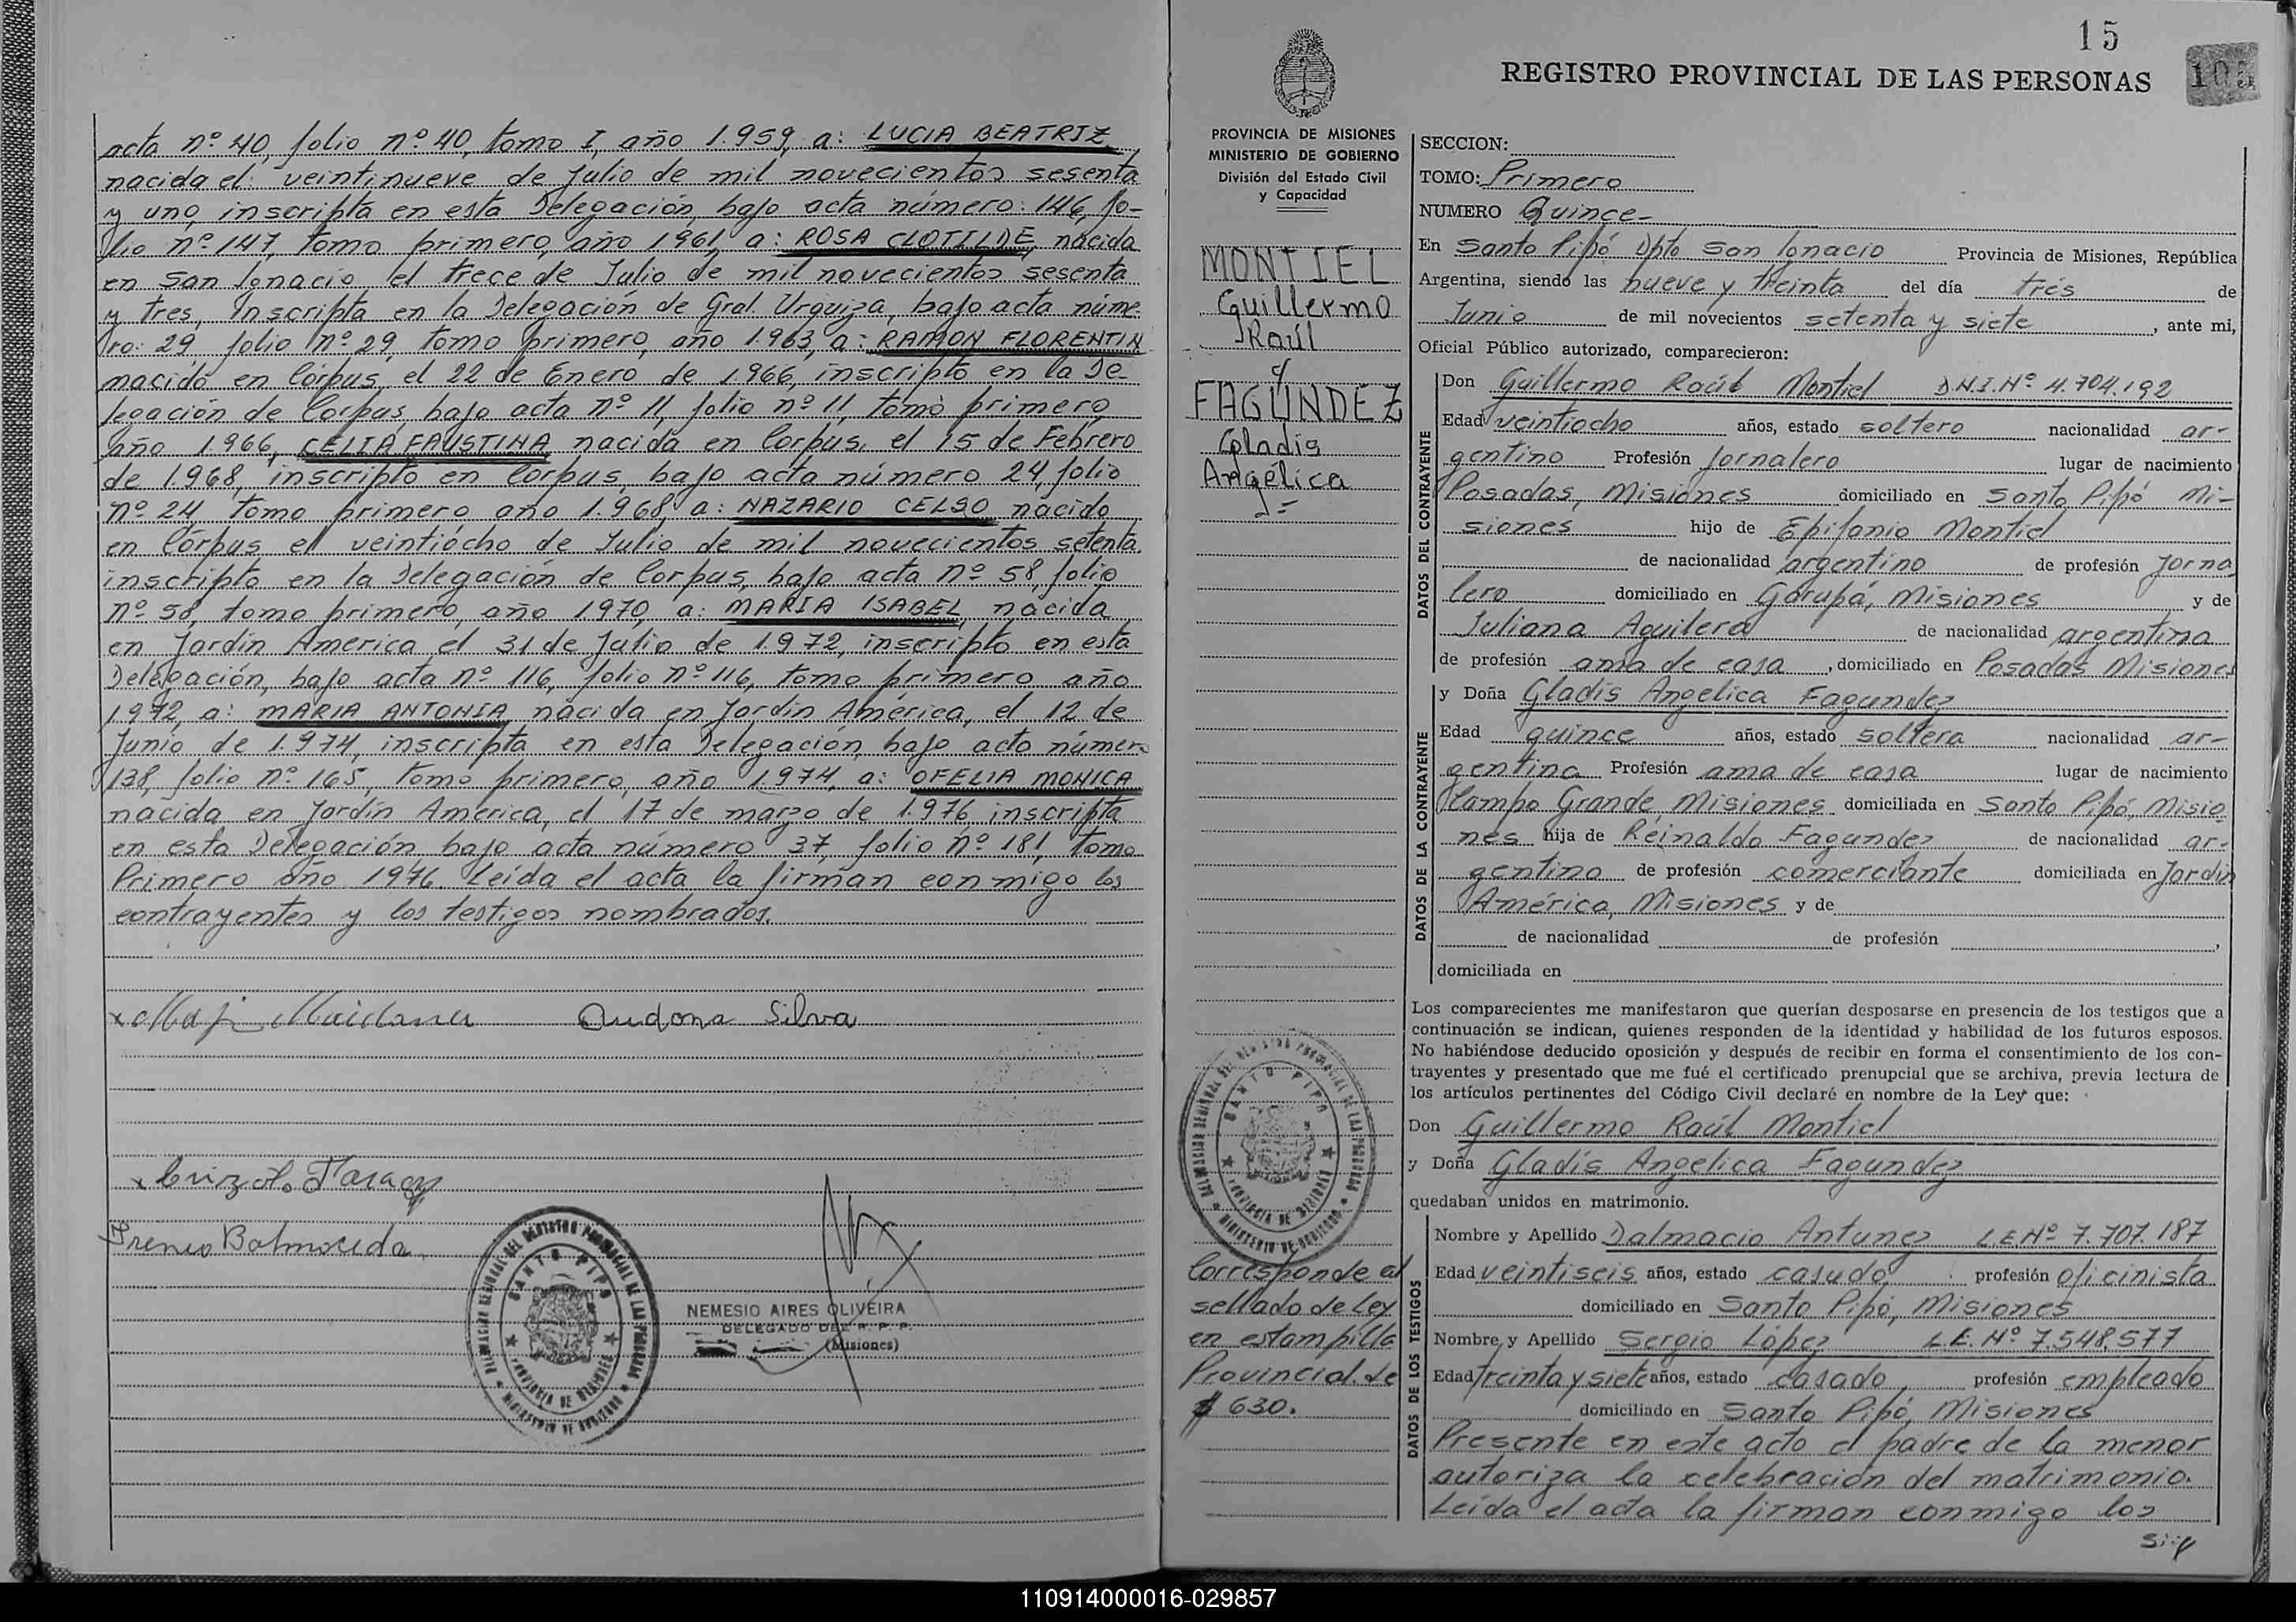 acta nº 40, folio nº 40, tomo I, año 1.959, a: LUCIA BEATRIZ,
nacida el veintinueve de Julio de mil novecientos sesenta
y uno, inscripta en esta Delegación, bajo acta número: 146, fo-
lio nº 147, Tomo primero, año 1961, a: ROSA CLOTILDE, nacida
en San Ignacio, el trece de Julio de mil novecientos sesenta
y tres, Inscripta en la Delegación de Gral. Urquiza, bajo acta núme-
ro: 29, folio nº 29, tomo primero, año 1.963, a: RAMON FLORENTIN
nacido en Córpus, el 22 de Enero de 1.966, inscripto en la De-
legación de Corpus, bajo acta nº 11, folio nº 11, tomo primero,
año 1.966, CELIA FAUSTINA nacida en Corpus, el 15 de Febrero
de 1.968, inscripto en Corpus, bajo acta número 24, folio
nº 24, Tomo primero, año 1.968, a: NAZARIO CELSO nacido
en Córpus el veintiocho de Julio de mil novecientos setenta,
inscripto en la Delegación de Corpus, bajo acta nº 58, folio
nº 58, tomo primero, año 1.970, a: MARIA ISABEL, nacida
en Jardín America, el 31 de Julio de 1.972, inscripto en esta
Delegación, bajo acta nº 116, folio nº 116, tomo primero año
1.972, a: MARIA ANTONIA nacida en Jardín América, el 12 de
Junio de 1.974, inscripta en esta Delegación, bajo acta número
138, folio nº 165, tomo primero, año 1.974, a: OFELIA MONICA
nacida en Jardín America, el 17 de marzo de 1.976, inscripta
en esta Delegación, bajo acta número 37, folio nº 181, Tomo
Primero año 1976. Leída el acta la firman conmigo los
contrayentes y los testigos nombrados.
Maidana Audona Silva
Irineo Balmaceda
DELEGACION REGIONAL DEL REGISTRO PROVINCIAL DE LAS PERSONAS
SANTO PIPO
PROVINCIA DE MISIONES
MINISTERIO DE GOBIERNO
NEMESIO AIRES OLIVEIRA
DELEGADO DEL R. P. P.
(Misiones)
15
REGISTRO PROVINCIAL DE LAS PERSONAS
105
PROVINCIA DE MISIONES
MINISTERIO DE GOBIERNO
División del Estado Civil
y Capacidad
MONTIEL
Guillermo
Raúl
c/
FAGUNDEZ
Gladis
Angélica
DELEGACION REGIONAL DEL REGISTRO PROVINCIAL DE LAS PERSONAS
SANTO PIPO
PROVINCIA DE MISIONES
MINISTERIO DE GOBIERNO
Corresponde al
sellado de Ley
en estampilla
Provincial de
$ 630.
SECCION:
TOMO: Primero
NUMERO Quince-
En Santo Pipó Dpto San Ignacio Provincia de Misiones, República
Argentina, siendo las nueve y treinta del día trés de
Junio de mil novecientos setenta y siete, ante mi,
Oficial Público autorizado, comparecieron:
DATOS DEL CONTRAYENTE
Don Guillermo Raúl Montiel D.N.I.Nº 4.704.192
Edad veintiocho años, estado soltero nacionalidad ar-
gentino Profesión Jornalero lugar de nacimiento
Posadas, Misiones domiciliado en Santo Pipó Mi-
siones hijo de Epifanio Montiel
de nacionalidad argentino de profesión Jorna
lero domiciliado en Garupá, Misiones y de
Juliana Aguilera de nacionalidad argentina
de profesión ama de casa, domiciliado en Posadas Misiones
DATOS DE LA CONTRAYENTE
y Doña Gladis Angelica Fagundez
Edad quince años, estado soltera nacionalidad ar-
gentina Profesión ama de casa lugar de nacimiento
Campo Grande, Misiones domiciliada en Santo Pipó, Misio
nes hija de Reinaldo Fagundez de nacionalidad ar-
gentino de profesión comerciante domiciliada en Jardín
América, Misiones y de
de nacionalidad de profesión ,
domiciliada en
Los comparecientes me manifestaron que querían desposarse en presencia de los testigos que a
continuación se indican, quienes responden de la identidad y habilidad de los futuros esposos.
No habiéndose deducido oposición y después de recibir en forma el consentimiento de los con-
trayentes y presentado que me fué el certificado prenupcial que se archiva, previa lectura de
los artículos pertinentes del Código Civil declaré en nombre de la Ley que:
Don Guillermo Raúl Montiel
y Doña Gladis Angelica Fagundez
quedaban unidos en matrimonio.
DATOS DE LOS TESTIGOS
Nombre y Apellido Dalmacio Antunez L.E.Nº 7.707.187
Edad veintiseis años, estado casado profesión oficinista
domiciliado en Santo Pipó, Misiones
Nombre y Apellido Sergio López L.E. Nº 7.548.577
Edad treinta y siete años, estado casado, profesión empleado
domiciliado en Santo Pipó, Misiones
Presente en este acto el padre de la menor
autoriza la celebración del matrimonio.
Leída el acta la firman conmigo los
110914000016-029857